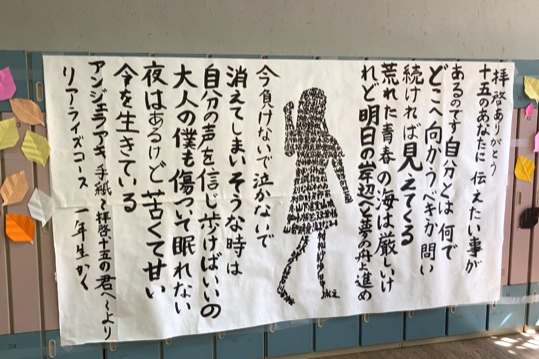 拝啓ありがとう
十五のあなたに 伝えたい事が
あるのです自分とは 何で
どこへ向かうべきか問い
続ければ見えてくる
荒れた青春の海は厳しいけ
れど明日の岸辺へと夢の舟よ進め
今負けないで泣かないで
消えてしまいそうな時は
自分の声を信じ歩けばいいの
大人の僕も傷ついて眠れない
夜はあるけど苦くて甘い
今を生きている
アンジェラアキ 手紙〜拝啓十五の君へ〜より
リアライズコース 一年生かく